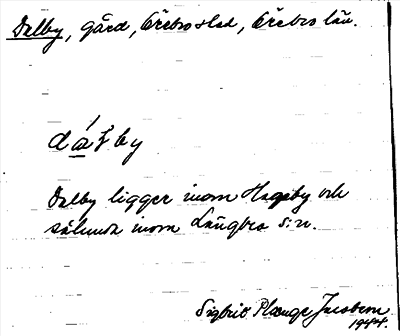 Dalby, gård, Örebro stad, Örebro län.
dáƚby
Dalby ligger inom Hageby och
sålunda inom Längbro s:n.
Sigbrit Plænge Jacobson
1944.